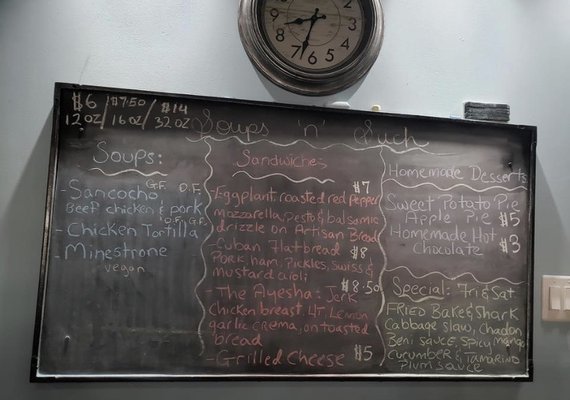 9 8 7 6 5 4 3 2
$6 / $7.50 / $14
12 OZ / 16 OZ / 32 OZ
Soups 'n' Such
Soups:
G.F. D.F.
- Sancocho
Beef chicken & pork
D.F. G.F.
- Chicken Tortilla
- Minestrone
vegan
Sandwiches
$7
- Eggplant, roasted red pepper
mozzarella, pesto & balsamic
drizzle on Artisan Bread
- Cuban Flatbread $8
Pork, ham, Pickles, Swiss &
mustard aioli
$8.50
- The Ayesha: Jerk
Chicken breast, LT, Lemon
garlic crema, on toasted
bread
- Grilled Cheese $5
Homemade Desserts
Sweet Potato Pie
Apple Pie $5
Homemade Hot
Chocolate $3
Special: Fri & Sat
FRIED Bake & Shark
Cabbage slaw, Chadon
Beni sauce, Spicy mango,
cucumber & TAMARIND
Plum sauce